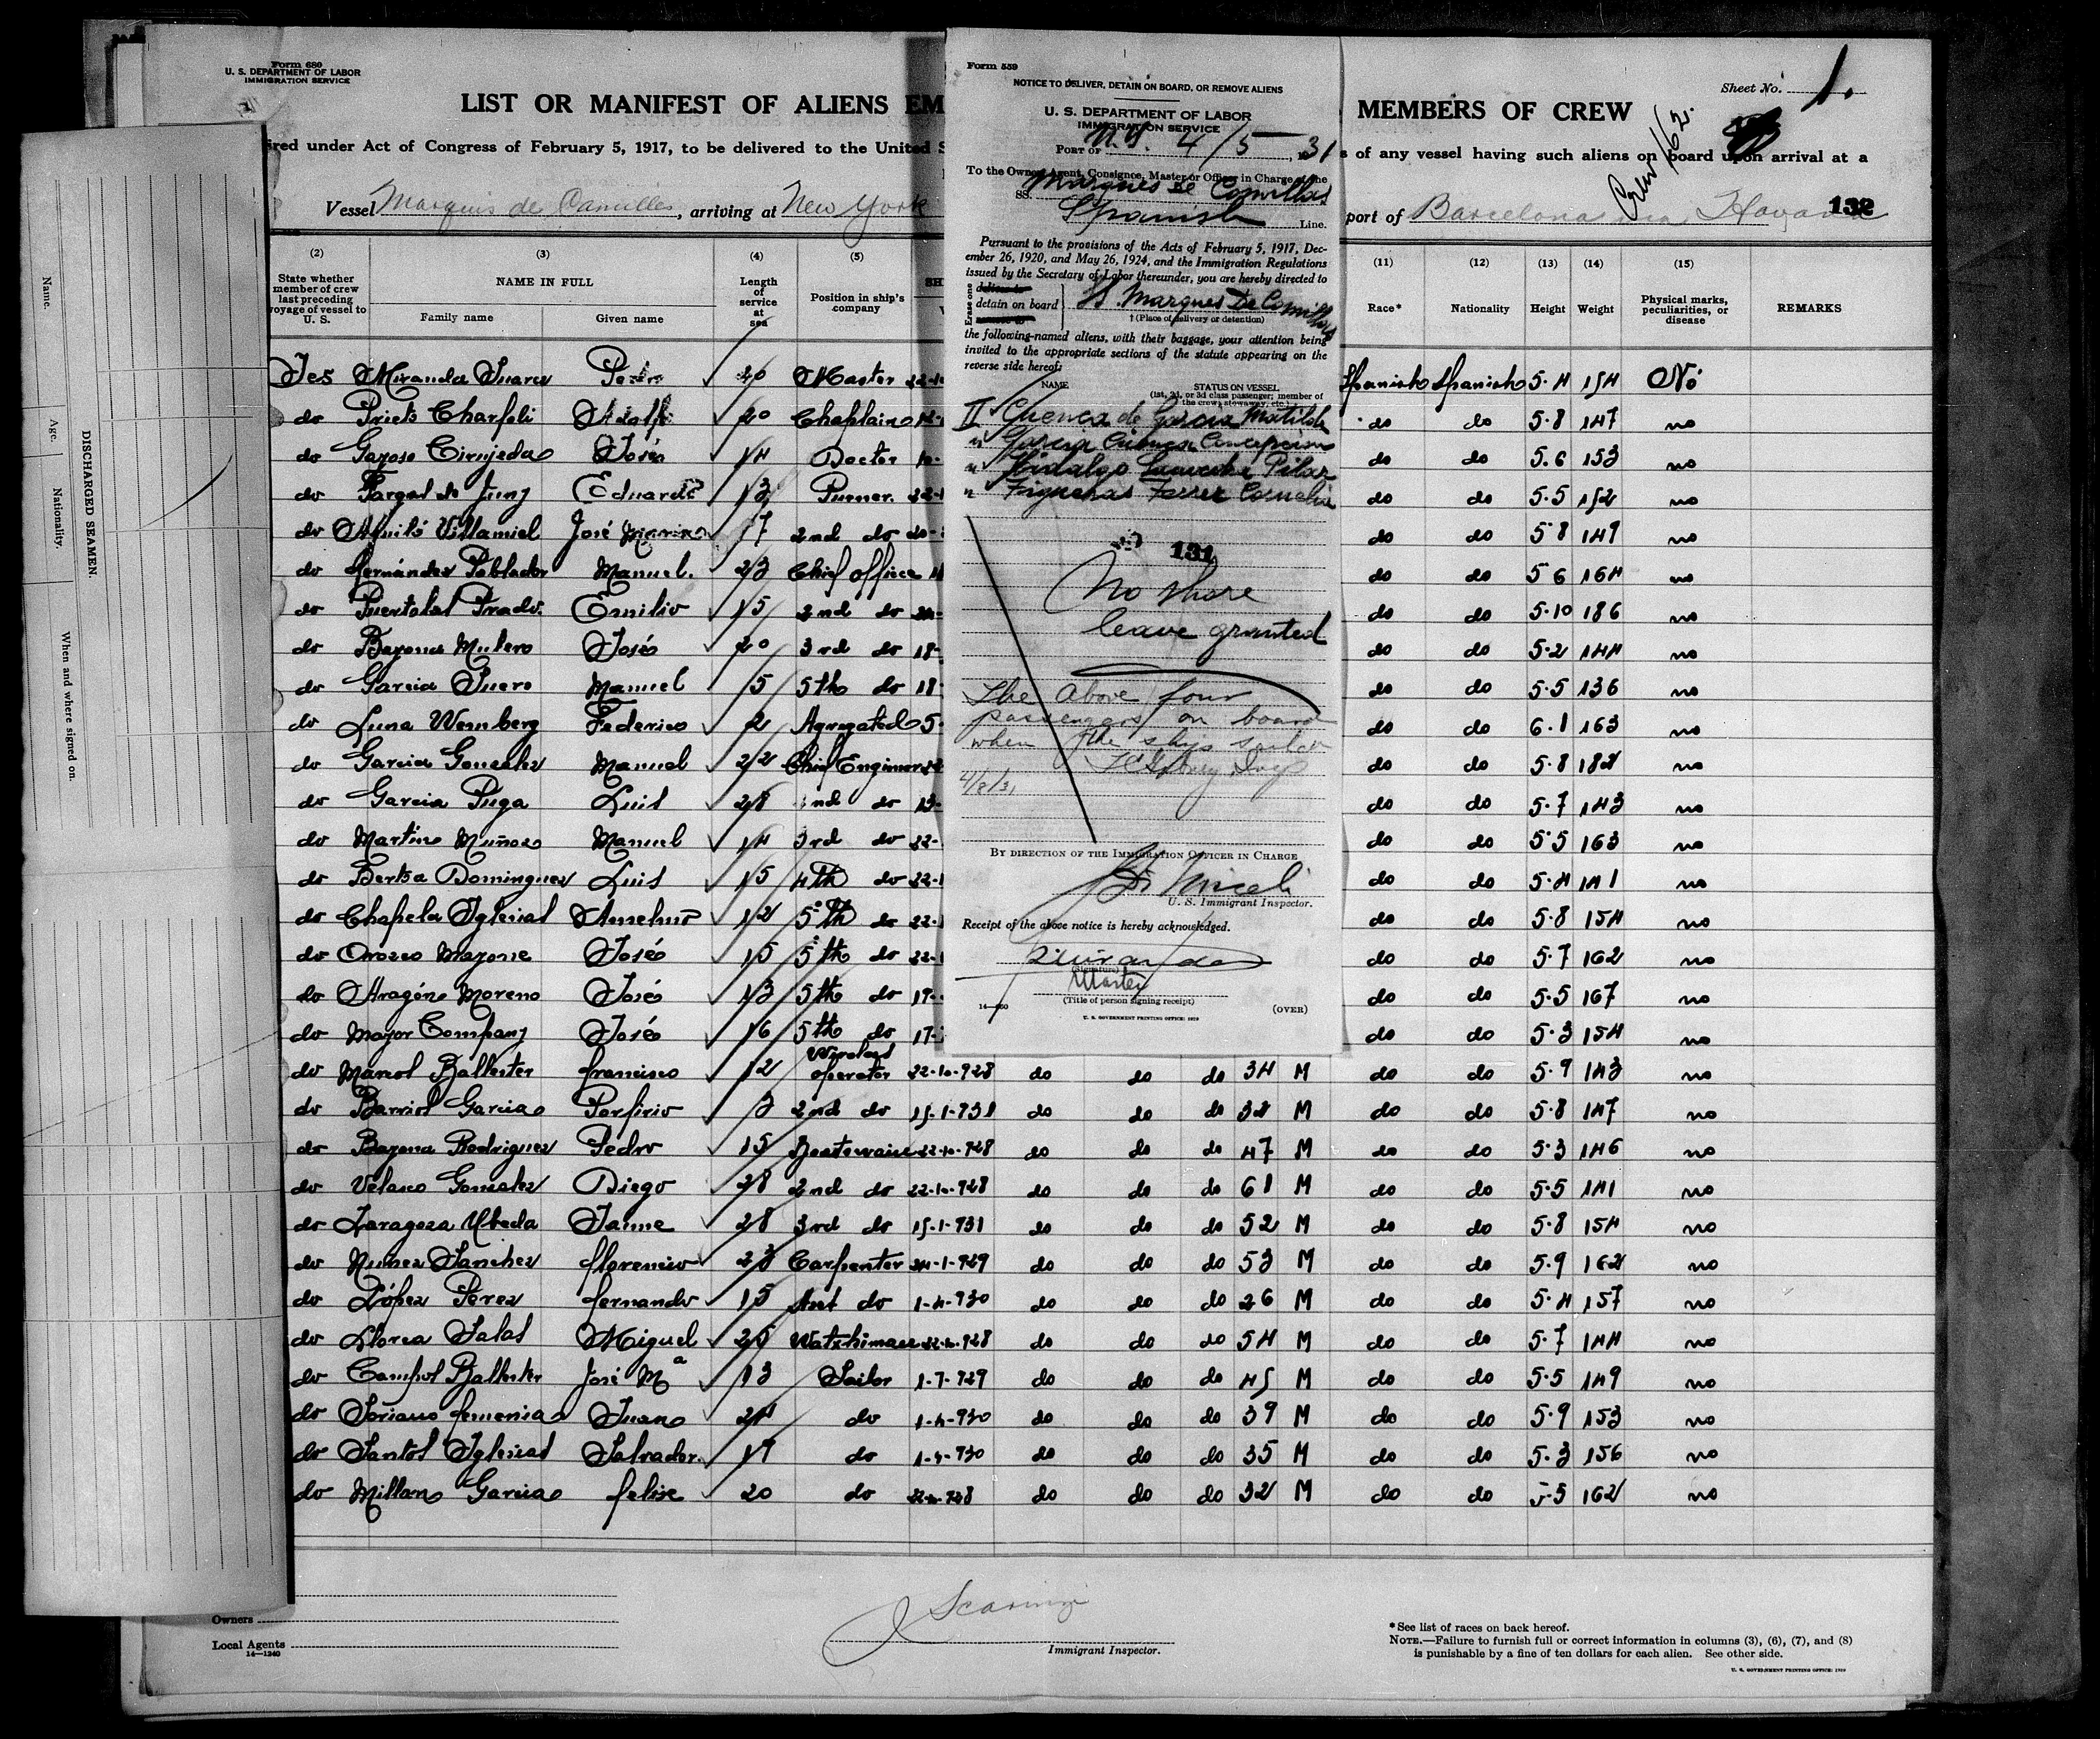 Form 680
U. S. DEPARTMENT OF LABOR
IMMIGRATION SERVICE
Sheet No. 1.
LIST OR MANIFEST OF ALIENS EM
MEMBERS OF CREW
Crew 162.
ired under Act of Congress of February 5, 1917, to be delivered to the United S
s of any vessel having such aliens on board upon arrival at a
Vessel Marques de Comillas, arriving at New York
port of Barcelona via Havana
132
(2) (3) (4) (5)
State whether member of crew last preceding voyage of vessel to U. S.
NAME IN FULL
Family name Given name
Length of service at sea
Position in ship's company
SH
(11) (12) (13) (14) (15)
Race* Nationality Height Weight Physical marks, peculiarities, or disease REMARKS
Yes Miranda Suarez Pedro 20 Master 22-1 Spanish Spanish 5·4 154 No
do Prieto 20 Chaplain do do 5·8 147 no
do Gayoso Cirujeda José 14 Doctor 10- do do 5.6 153 no
do Eduardo 13 Purser 22- do do 5·5 152 no
do Villamiel José 17 2nd do 20- do do 5 8 149 no
do Hernández Poblador Manuel. 23 Chief office do do 5 6 164 no
do Puertolas Prado. Emilio 15 2nd do do do 5·10 186 no
do Bayona Mulero José 20 3rd do 18- do do 5·2 144 no
do Garcia Suero Manuel 15 5th do 18 do do 5·5 136 no
do Luna Wennberg Federico 2 Agregated 5- do do 6·1 163 no
do Garcia Gonzalez Manuel 22 Chief Engineer do do 5·8 182 no
do Garcia Puga Luis 28 2nd do 13- do do 5·7 143 no
do Martin Muñoz Manuel 14 3rd do 22- do do 5·5 163 no
do Dominguez Luis 15 4th do 22-1 do do 5·4 141 no
do Chapela Iglesias Anselmo 12 5th do 22-1 do do 5·8 154 no
do Orozco José 15 5th do 22-1 do do 5·7 162 no
do Aragón Moreno José 13 5th do 19- do do 5·5 167 no
do Mayor Company José 16 5th do 17- do do 5·3 154 no
do Ballester Francisco 12 Wireless operator 22-10-928 do do do 34 M do do 5·9 143 no
do Barrios Garcia Porfirio 3 2nd do 15-1-931 do do do 32 M do do 5·8 147 no
do Bayona Rodriguez Pedro 15 Boatswain 22-10-928 do do do 47 M do do 5·3 146 no
do Velasco Gonzalez Diego 28 2nd do 22-10-928 do do do 61 M do do 5·5 141 no
do Zaragoza Ubeda Jaime 28 3rd do 15-1-931 do do do 52 M do do 5·8 154 no
do Nuñez Sanchez Florencio 23 Carpenter 24-1-929 do do do 53 M do do 5·9 162 no
do López Perez Fernando 15 Asst do 1-4-930 do do do 26 M do do 5·4 157 no
do Llorca Salas Miguel 25 Watchman 22-10-928 do do do 54 M do do 5·7 144 no
do Campos Ballester José Mª 13 Sailor 1-7-929 do do do 45 M do do 5·5 149 no
do Soriano Femenia Juan 24 do 1-4-930 do do do 39 M do do 5·9 153 no
do Santos Iglesias Salvador 19 do 1-4-930 do do do 35 M do do 5·3 156 no
do Millan Garcia Felix 20 do do do do 32 M do do 5·5 162 no
Owners
Local Agents
14—1240
Immigrant Inspector.
*See list of races on back hereof.
NOTE.—Failure to furnish full or correct information in columns (3), (6), (7), and (8)
is punishable by a fine of ten dollars for each alien. See other side.
U. S. GOVERNMENT PRINTING OFFICE: 1929
Form 559
NOTICE TO DELIVER, DETAIN ON BOARD, OR REMOVE ALIENS
U. S. DEPARTMENT OF LABOR
IMMIGRATION SERVICE
PORT OF N.Y. 4/5, 1931
To the Owner, Agent, Consignee, Master or Officer in Charge of the
SS. Marques De Comillas
Spanish Line.
Pursuant to the provisions of the Acts of February 5, 1917, Dec-
ember 26, 1920, and May 26, 1924, and the Immigration Regulations
issued by the Secretary of Labor thereunder, you are hereby directed to
Erase one
deliver to
detain on board SS Marques De Comillas
† (Place of delivery or detention)
the following-named aliens, with their baggage, your attention being
invited to the appropriate sections of the statute appearing on the
reverse side hereof:
NAME STATUS ON VESSEL
(1st, 2d, or 3d class passenger; member of
the crew; stowaway, etc.)
II Cuenca de Garcia Matilde
" Garcia Cuenca Concepcion
" Hidalgo Pilar
" Figueras Ferrer Cornelia
131
No shore
leave granted
The above four
passengers on board
when the ship sailed
4/8/31
BY DIRECTION OF THE IMMIGRATION OFFICER IN CHARGE
U. S. Immigrant Inspector.
Receipt of the above notice is hereby acknowledged.
Miranda
(Signature)
Master
(Title of person signing receipt)
(OVER)
U. S. GOVERNMENT PRINTING OFFICE: 1929
DISCHARGED SEAMEN.
Name. Age. Nationality. When and where signed on.